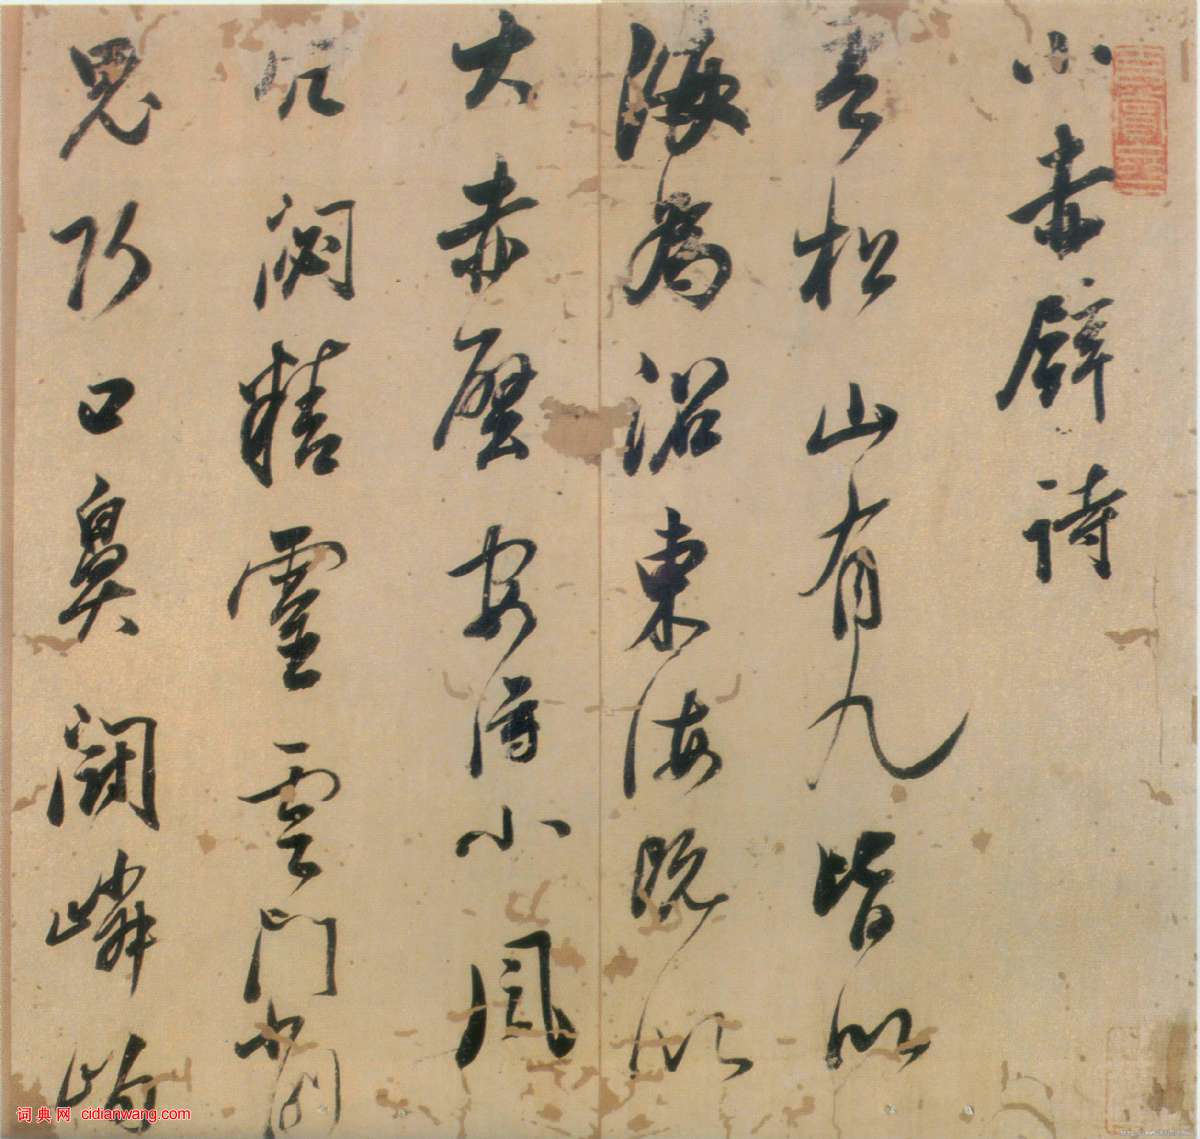 小赤壁詩
吾松山有九皆以
海為沼東海既以
大赤壁安得小風
穴閟精靈雲門肖
鬼巧口鼻嶙峋
词典网 cidianwang.com